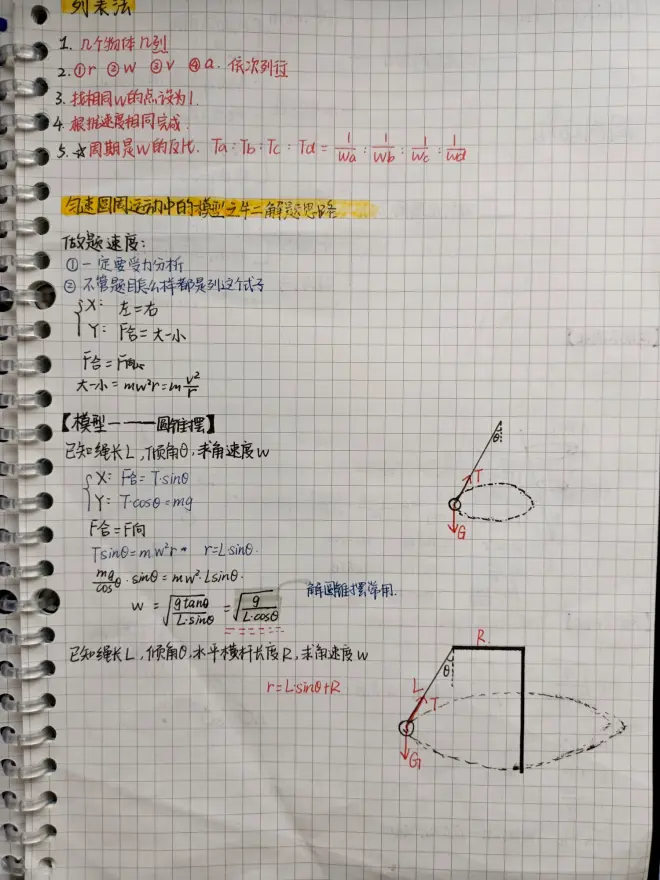 列表法
1. 几个物体几列
2. ①r ②w ③v ④a. 依次列过
3. 找相同w的点设为1.
4. 根据速度相同完成.
5. ☆周期是w的反比. Ta:Tb:Tc:Td = 1/wa : 1/wb : 1/wc : 1/wd
匀速圆周运动中的模型之 解题思路
做题速度:
①一定要受力分析
②不管题目怎么样都是列这个式子
X: 左=右
Y: F合=大-小
F合=F向
大-小=mw²r=m v²/r
【模型一——圆锥摆】
已知绳长L,倾角θ,求角速度w
X: F合=T·sinθ
Y: T·cosθ=mg
F合=F向
Tsinθ=mw²r r=L·sinθ.
mg/cosθ·sinθ=mw²·Lsinθ.
w=√(gtanθ/L·sinθ)=√(g/L·cosθ)
解圆锥摆常用.
θ
T
G
已知绳长L,倾角θ,水平横杆长度R,求角速度w
r=L·sinθ+R
R
θ
L
T
G